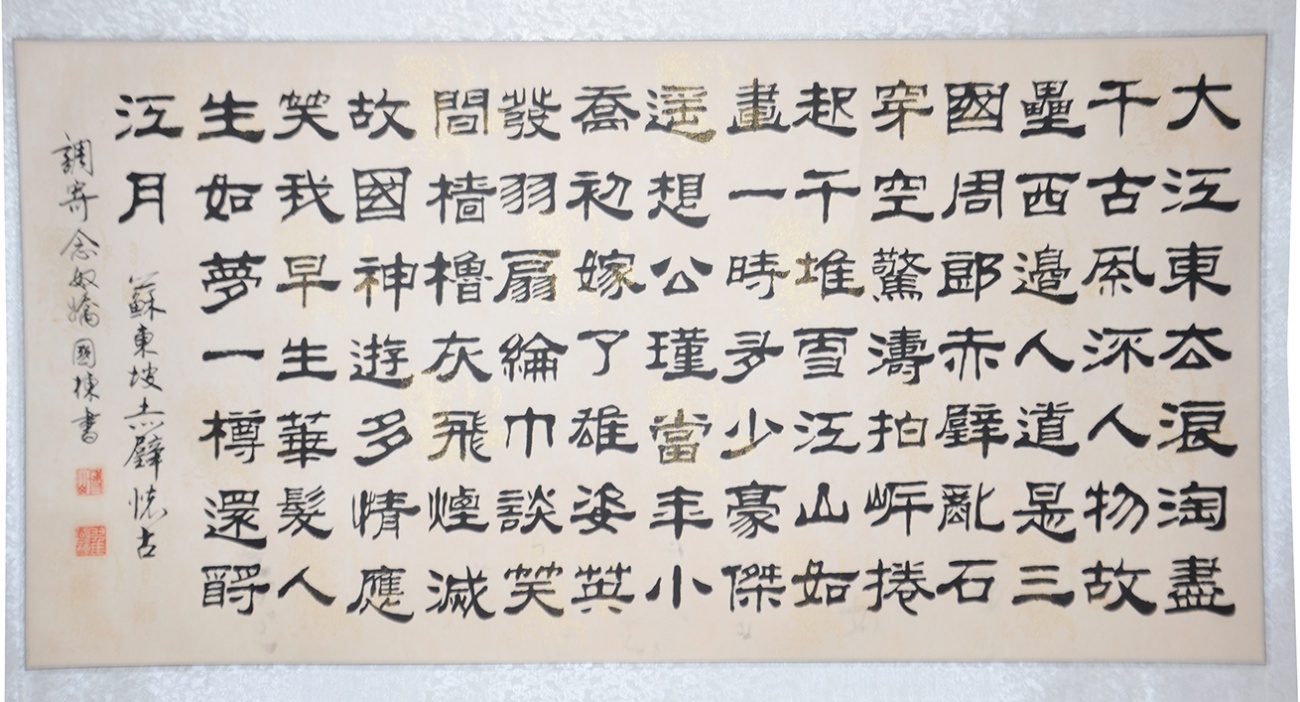 大江東去浪淘盡
千古風流人物故
壘西邊人道是三
國周郎赤壁亂石
穿空驚濤拍岸捲
起千堆雪江山如
畫一時多少豪傑
遥想公瑾當年小
喬初嫁了雄姿英
發羽扇綸巾談笑
間檣櫓灰飛煙滅
故國神遊多情應
笑我早生華髮人
生如夢一樽還酹
江月
蘇東坡赤壁懷古
調寄念奴嬌國棟書